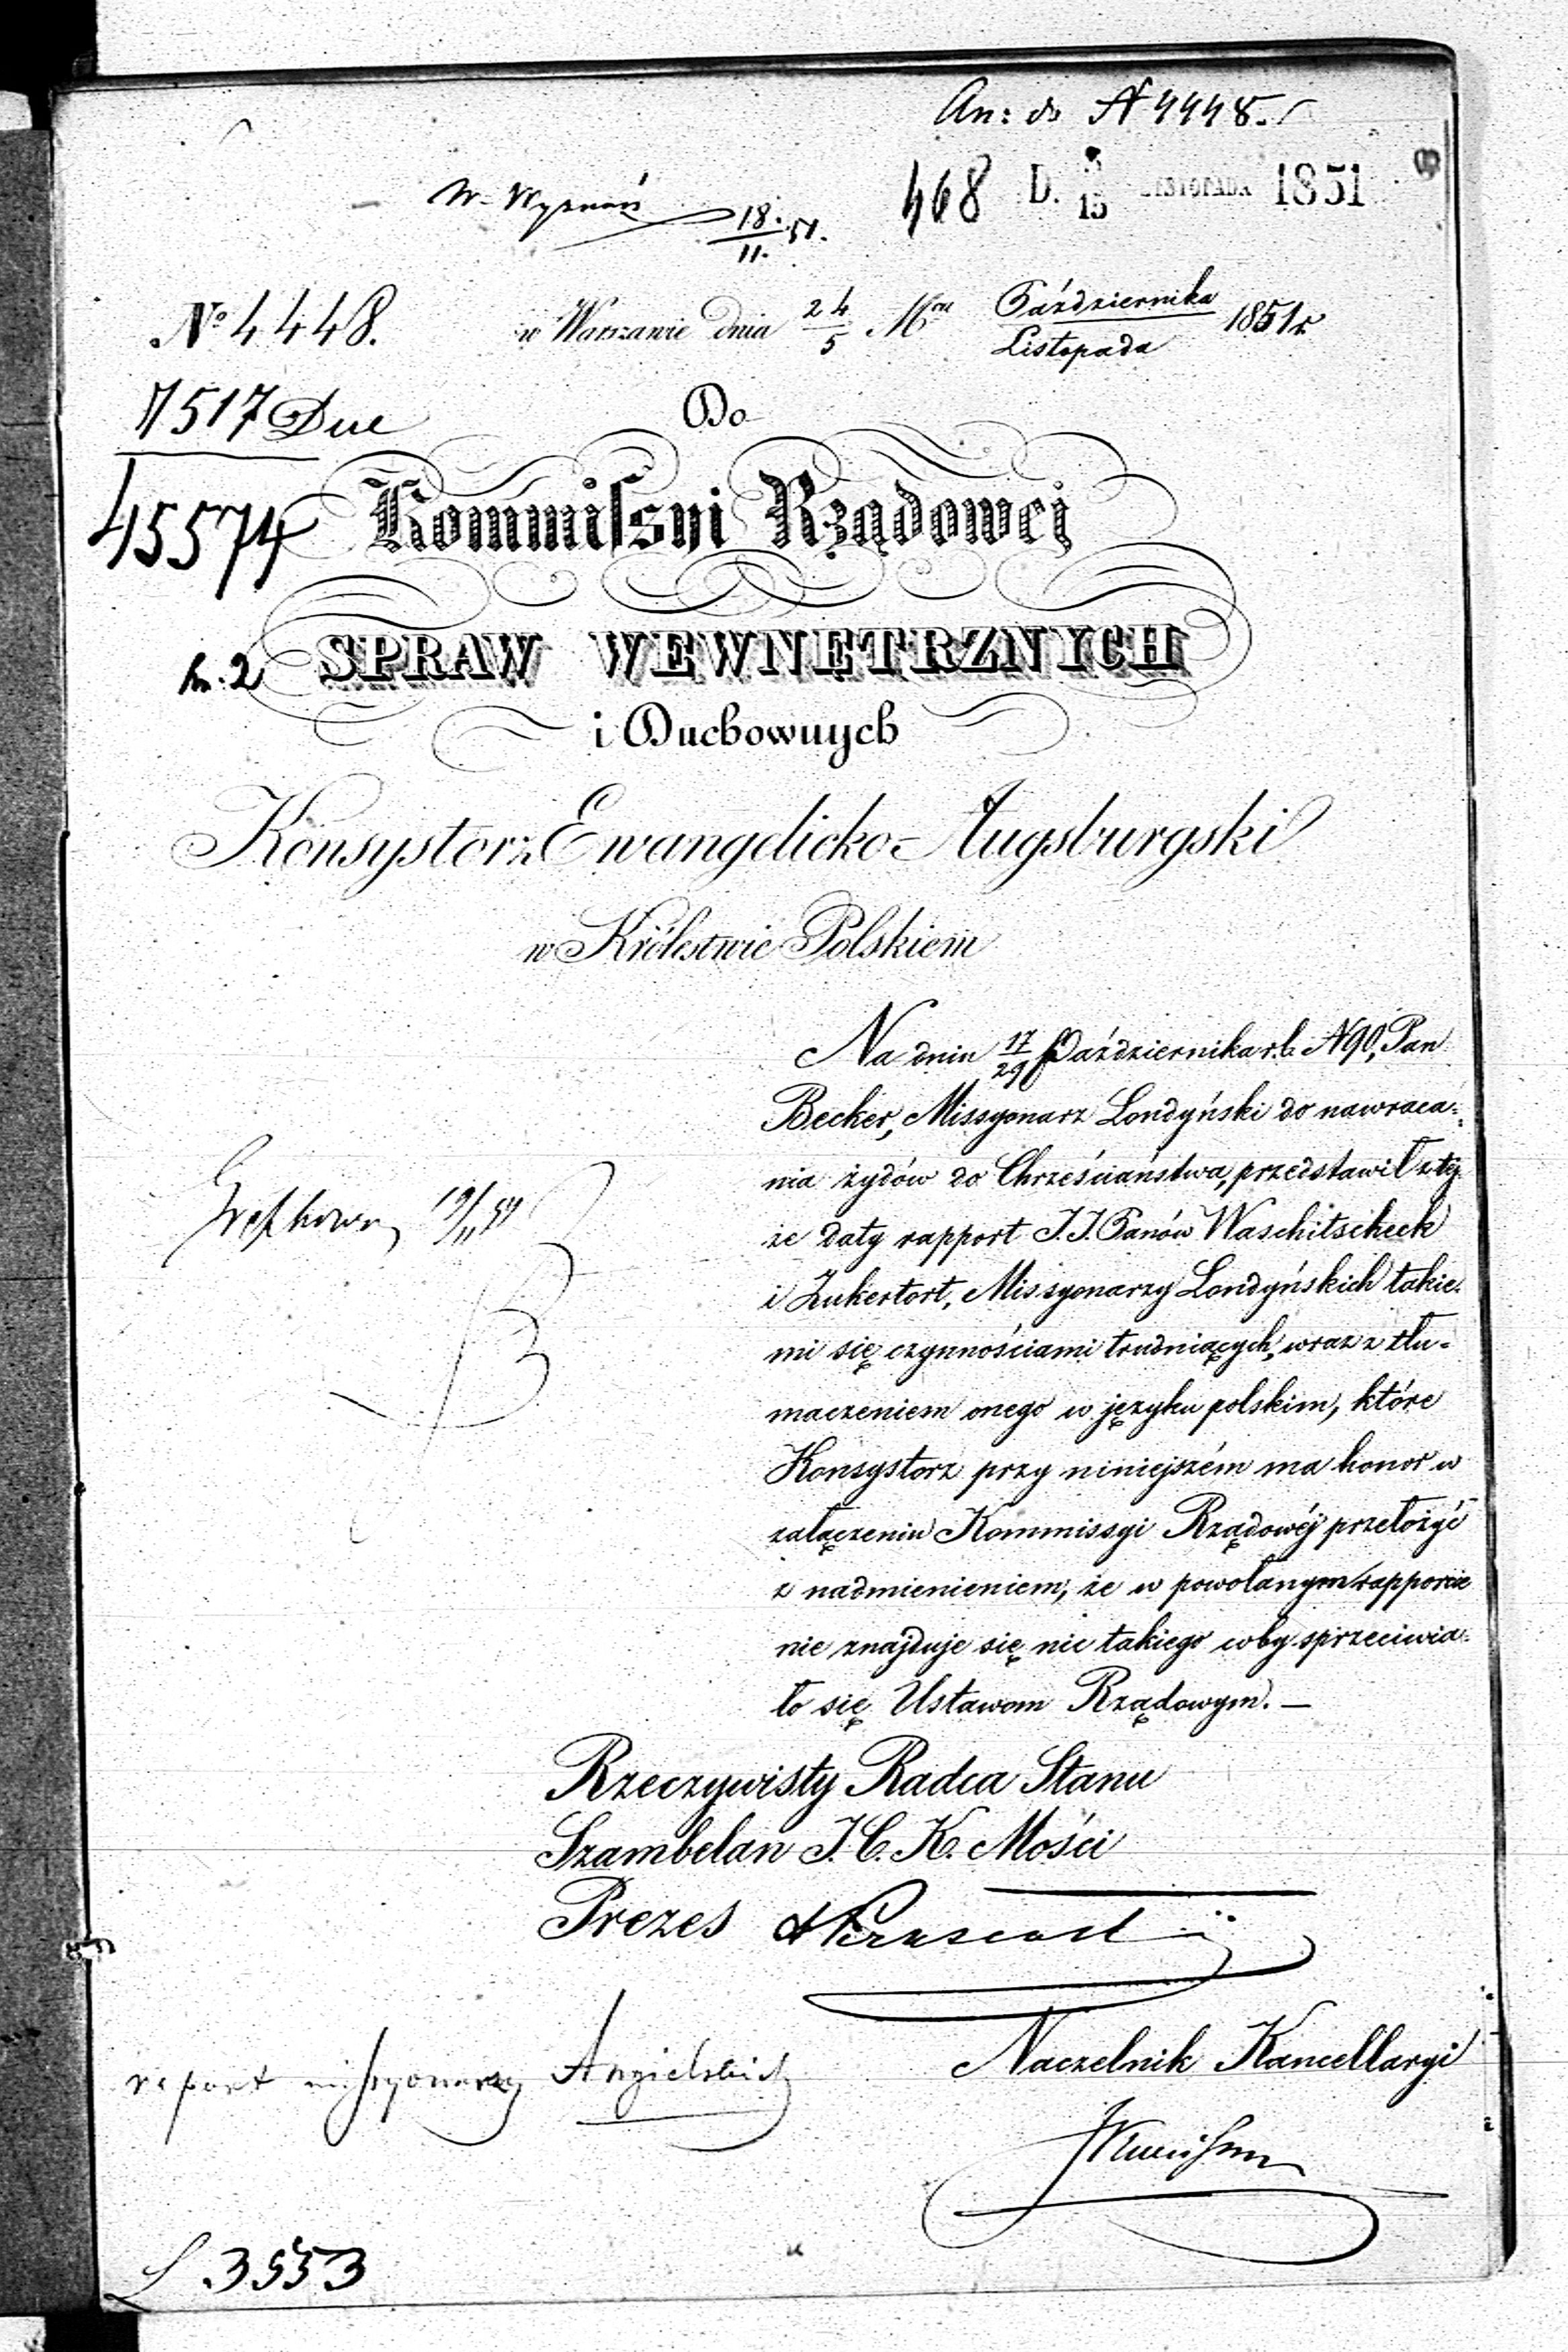 An: do N 4448.
W. Wyznań 18./11. 51.
468 D. 3/15 LISTOPADA 1851
No 4448. w Warszawie dnia 24/5 Mca Października/Listopada 1851 r.
7517 Due
Do
45574
Kommissyi Rządowej
SPRAW WEWNĘTRZNYCH
i Duchownych
Konsystorz Ewangelicko-Augsburgski
w Królestwie Polskiem
Na dniu 17/29 Października r.b. N 90, Pan
Becker, Missyonarz Londyński do nawraca=
nia żydów do Chrześciaństwa, przedstawił z tej
że daty rapport J.J. Panów Waschitscheck
i Zukertort, Missyonarzy Londyńskich takie=
mi się czynnościami trudniących, wraz z tłu=
maczeniem onego w języku polskim, które
Konsystorz przy niniejszém ma honor w
załączeniu Kommissyi Rządowéj przełożyć
z nadmienieniem, że w powołanym rapporcie
nie znajduje się nic takiego coby sprzeciwia=
ło się Ustawom Rządowym. —
19/11 51
Rzeczywisty Radca Stanu
Szambelan J. C. K. Mości
Prezes
Naczelnik Kancellaryi
raport missyonarzy Angielskich
L. 3553